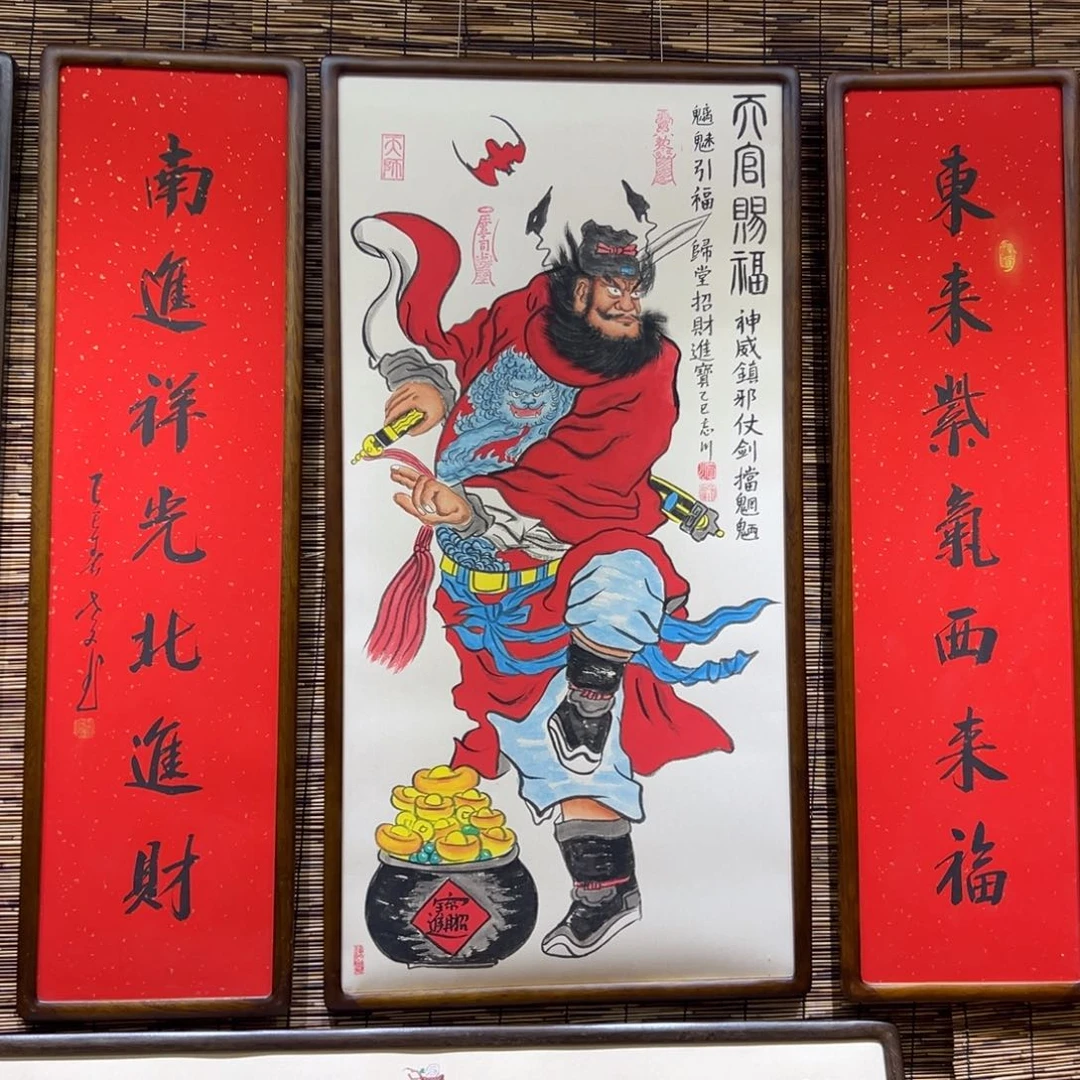 東来紫氣西来福
天官賜福 神威鎮邪仗剑擋魍魉
魑魅引福 歸堂招財進寶乙巳志川
天师
招財進寶
南進祥光北進財